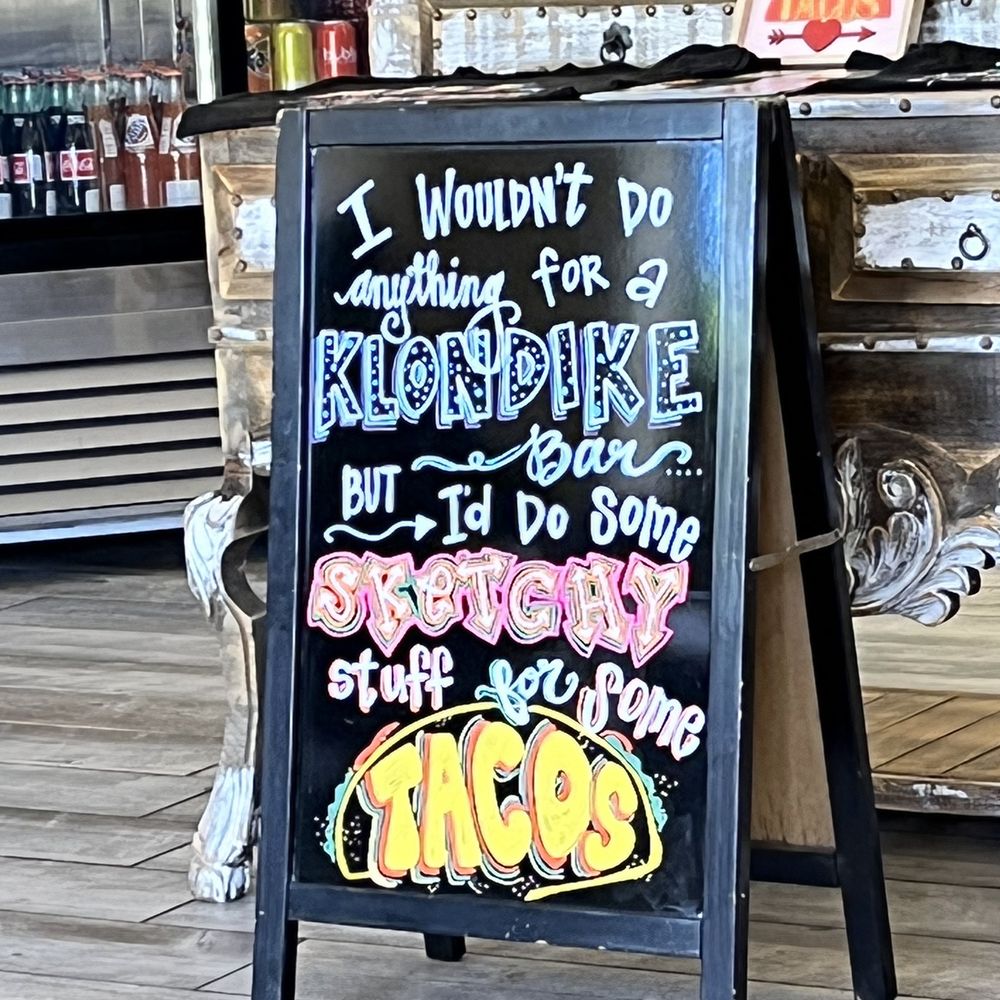 TACOS
I WOULDN't DO
anything for a
KLONDIKE
Bar....
BUT I'd Do Some
SKetCHY
stuff for Some
TACOS